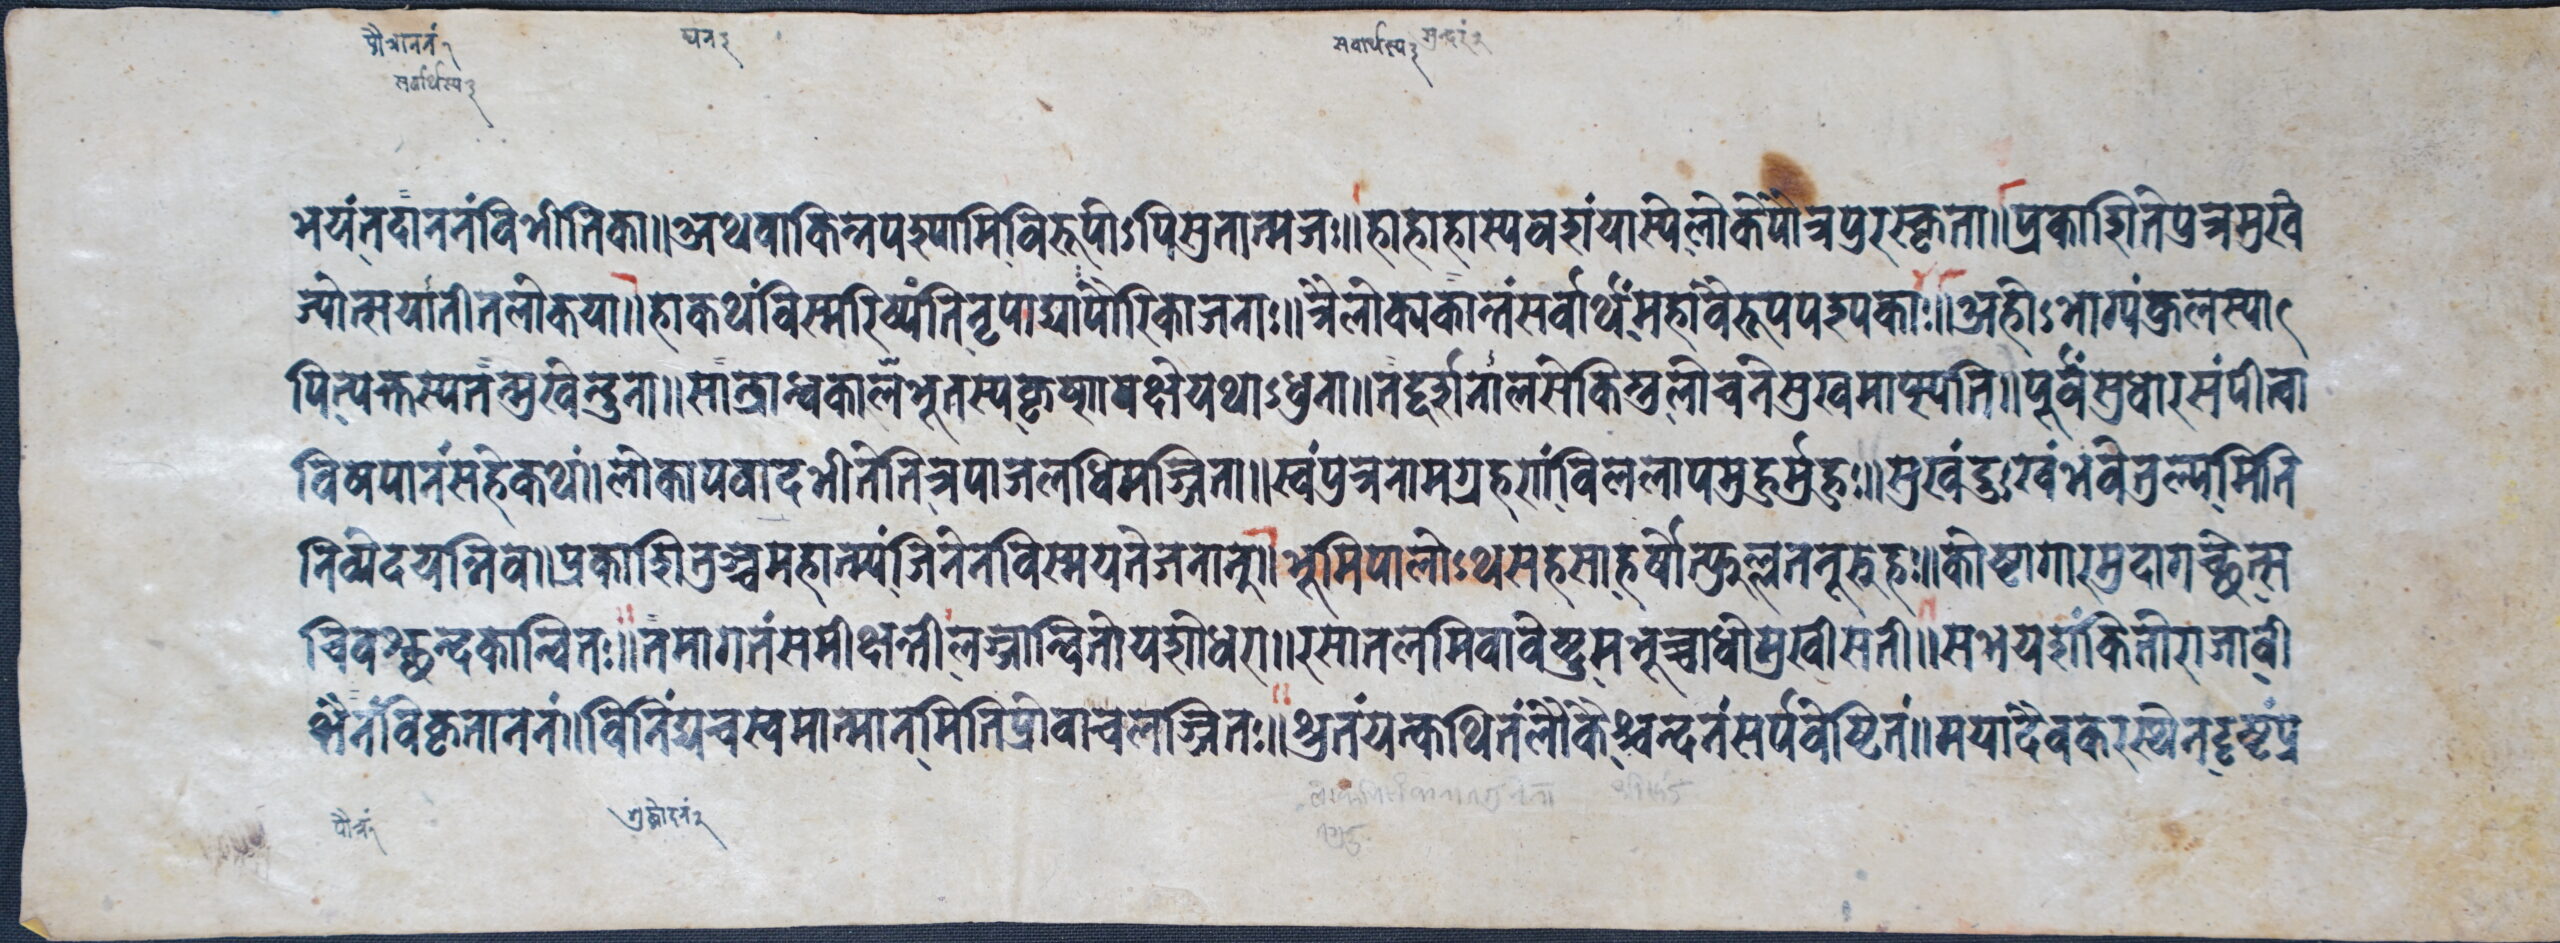 पौत्राननं१ घन३ सर्वार्थस्य३ सुन्दरं२
सर्वार्थस्य३
भयं तदाननं विभीतिका॥ अथवा किन्नपश्यामि विरूपोऽपि सुतात्मजः॥ हाहा हास्यवशं यास्ये लोके पौत्रपुरस्कृता॥ प्रकाशिते पुत्रमुखे
ज्योत्स्नयातीतलोकया॥ हा कथं विस्मरिष्यंति नृपाद्या पौरिका जनाः॥ त्रैलोक्यकान्तं सर्वार्थं महावैरूपपश्यकाः॥ अहोऽभाग्यं कुलस्या
पि त्यक्तस्य तन्मुखेन्दुना॥ सान्द्रान्धकालभूतस्य कृष्णपक्षे यथाऽधुना॥ तद्दर्शनालसे किन्नु लोचने सुखमाप्स्यति॥ पूर्वं सुधारसं पीत्वा
विषपानं सहे कथं॥ लोकापवादभीतेति त्रपाजलधिमज्जिता॥ स्वं पुत्रनामग्रहणं विललाप मुहुर्मुहुः॥ सुखं दुःखं भवेतुल्यमिति
निवेदयन्निव॥ प्रकाशितुञ्च महात्म्यं जिनेन विस्मयते जनान्॥ भूमिपालोऽथ सहसा हर्षोत्फुल्लतनूरुहः॥ कोष्टागारमुदागच्छेत्स
चिवश्छन्दकान्वितः॥ तमागतं समीक्षन्ती लज्जान्विता यशोधरा॥ रसातलमिवावेष्टुमभूच्चाधोमुखी सती॥ सभयशंकितो राजा वी
क्ष्यैनं विकृताननं॥ विनिंद्य च स्वमात्मानमिति प्रोवाच लज्जितः॥ श्रुतं यत्कथितं लोकैश्चन्दनं सर्पवेष्टितं॥ मया दैवकरस्थेन दृष्टं प्र
पौत्रं१ शुद्धोदनं२